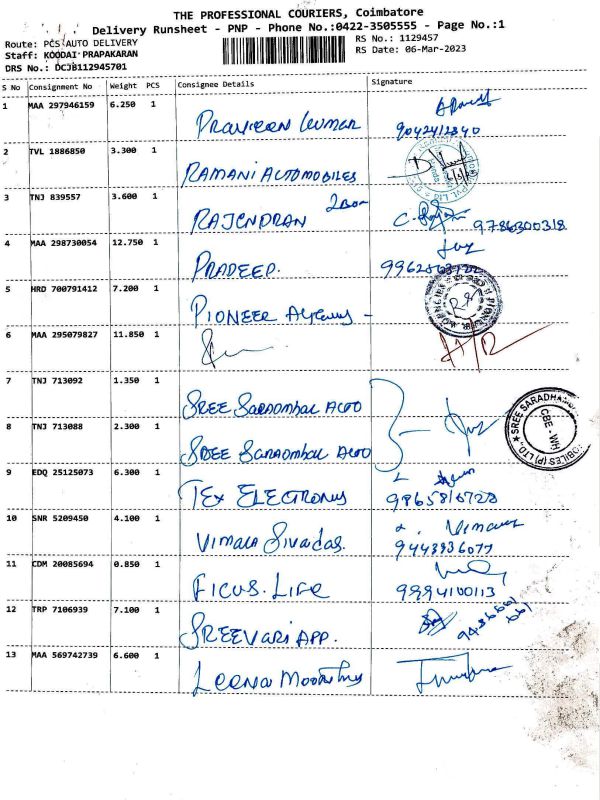 THE PROFESSIONAL COURIERS, Coimbatore
Delivery Runsheet - PNP - Phone No.:0422-3505555 - Page No.:1
Route: PCS AUTO DELIVERY
RS No.: 1129457
Staff: KOODAI PRAPAKARAN
RS Date: 06-Mar-2023
DRS No.: DCJB112945701
S No Consignment No Weight PCS Consignee Details Signature
1 MAA 297946159 6.250 1 PRAVEEN KUMAR
2 TVL 1886850 3.300 1 RAMANI AUTOMOBILES
3 TNJ 839557 3.600 1 RAJENDRAN 9786300318
4 MAA 298730054 12.750 1 PRADEEP.
5 HRD 700791412 7.200 1 PIONEER Agencys -
6 MAA 295079827 11.850 1
7 TNJ 713092 1.350 1 SREE Saradmbal AUTO
8 TNJ 713088 2.300 1 SREE Saradmbal AUTO
SREE SARADHAM
CBE - WH
OBILES (P) LTD.,
9 EDQ 25125073 6.300 1 TEX ELECTRONYS 9965816728
10 SNR 5209450 4.100 1 VIMALA Sivadas. Vimala
9443936077
11 CDM 20085694 0.850 1 FICUS. LIFE 9994100113
12 TRP 7106939 7.100 1 SREEVARI APP.
13 MAA 569742739 6.600 1 Leena Moorthy